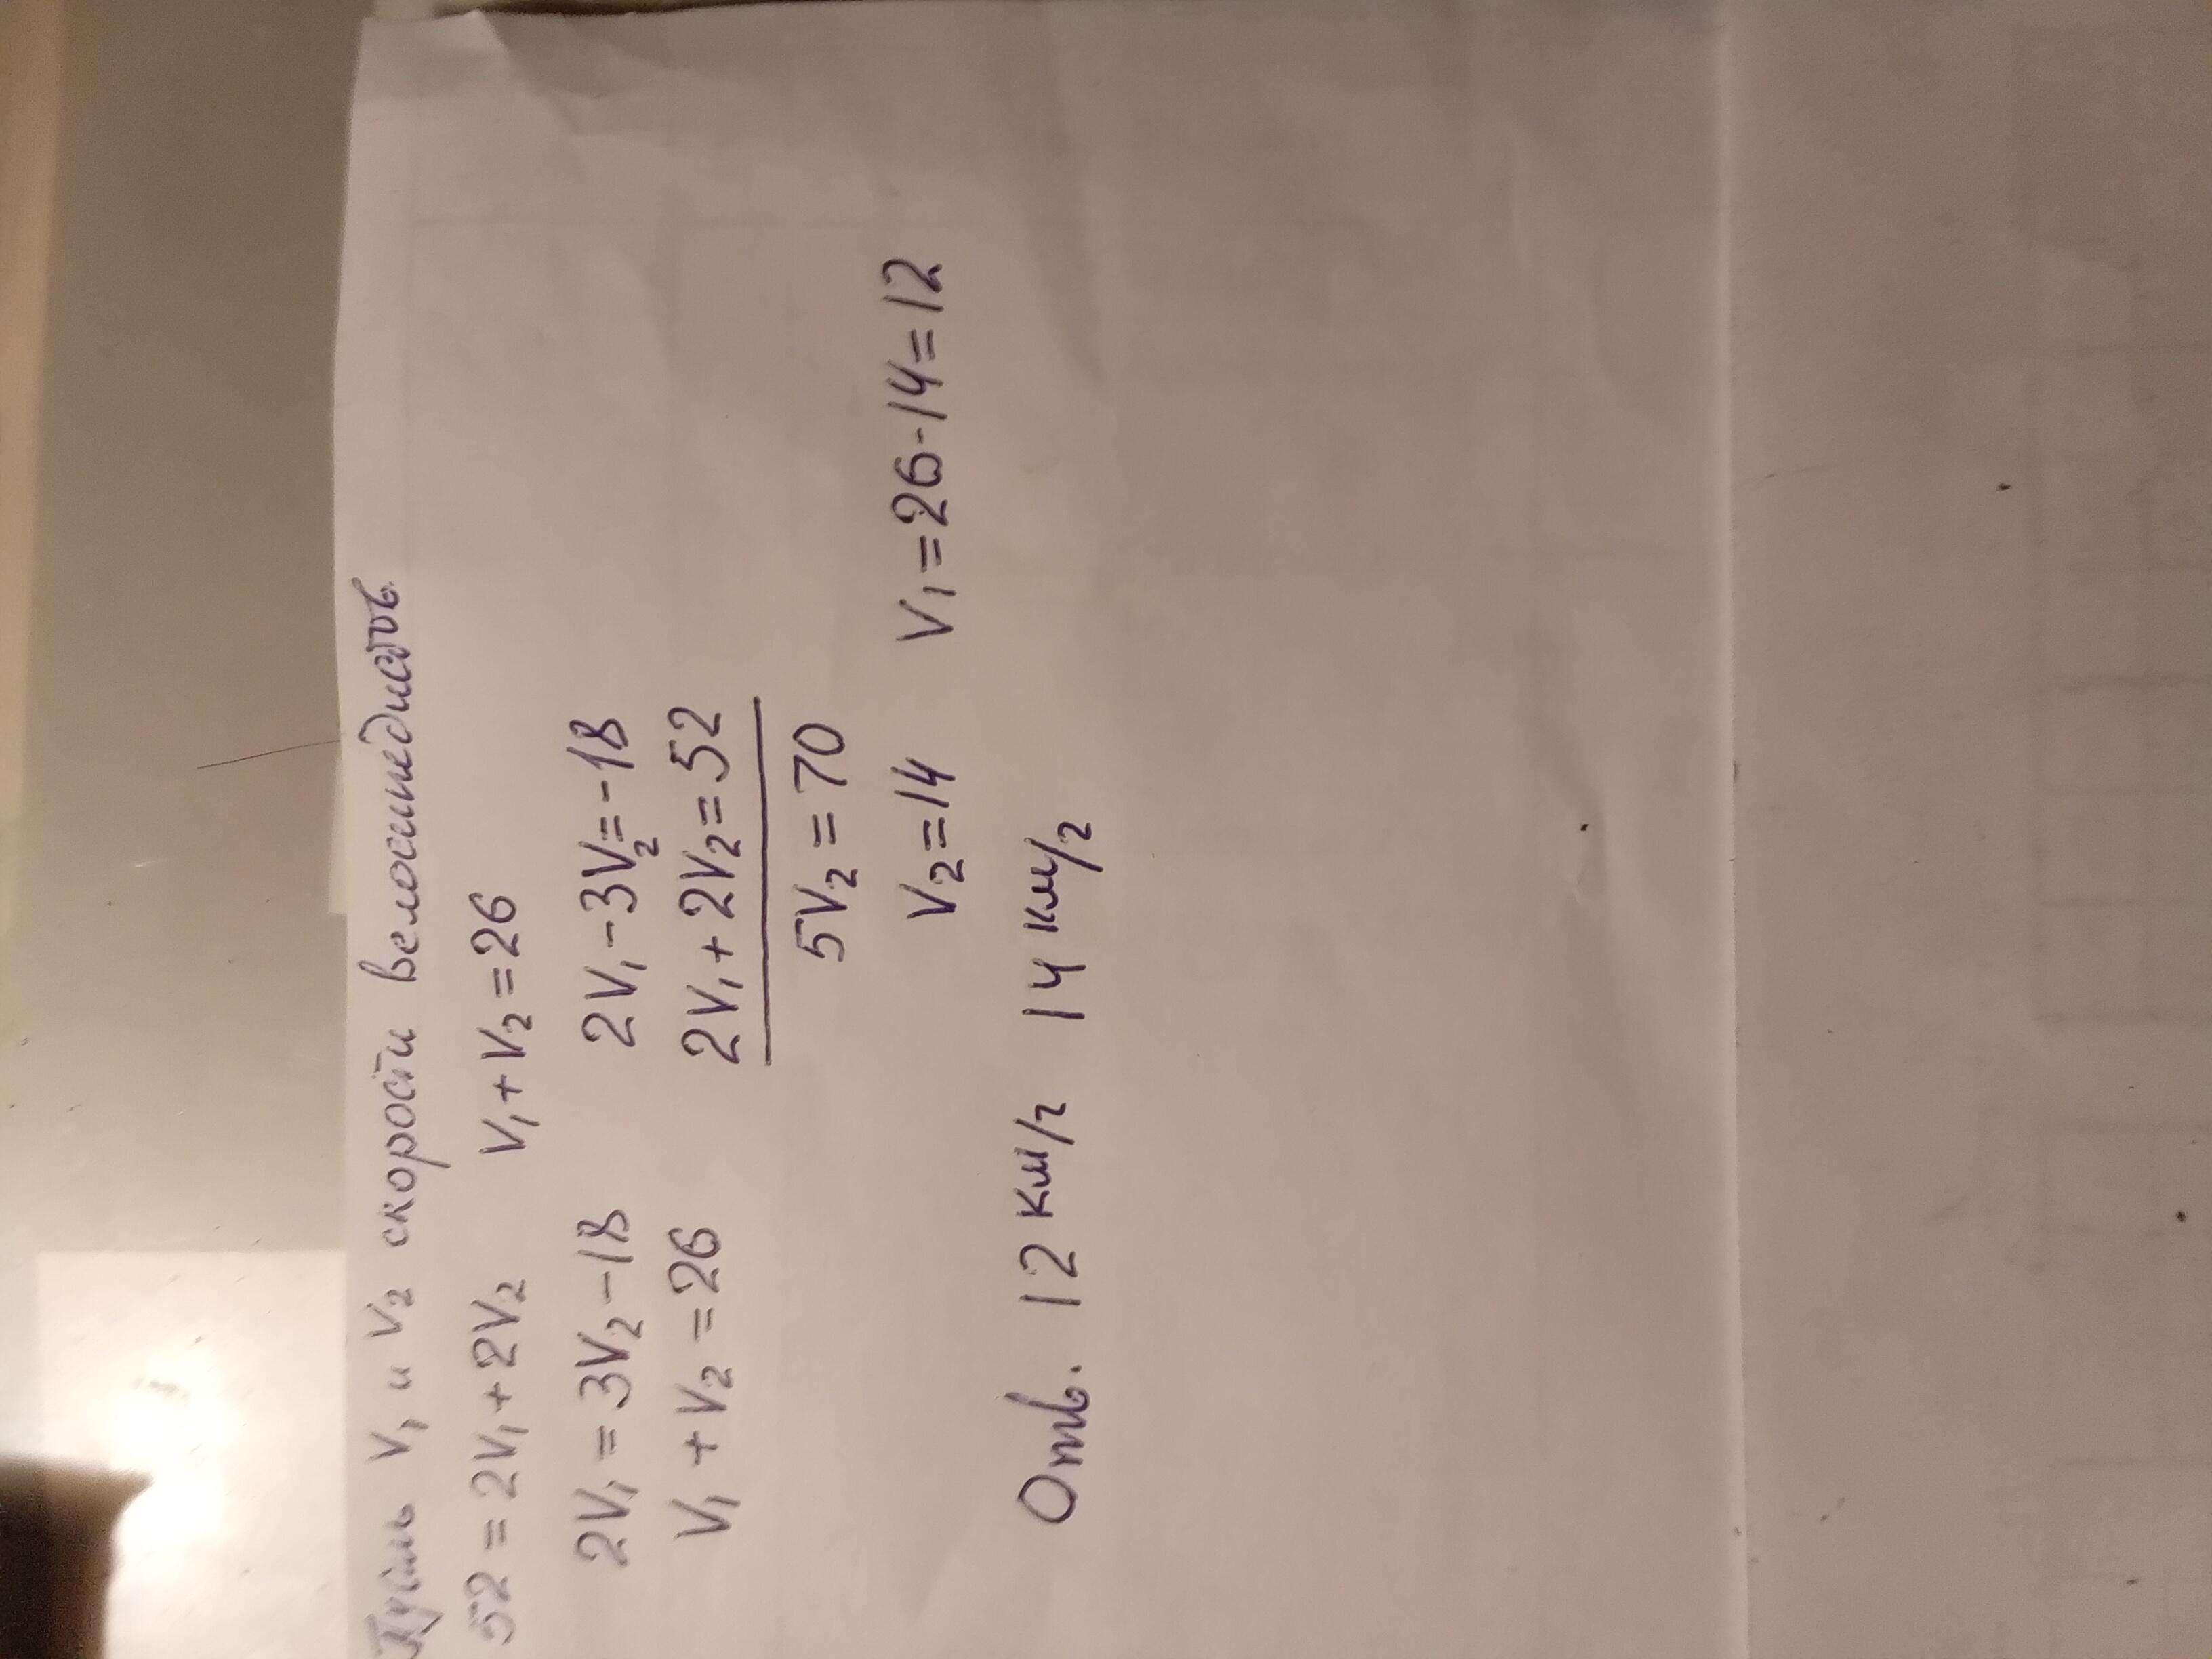 Пусть V₁ и V₂ скорости велосипедистов.
52 = 2V₁ + 2V₂ V₁ + V₂ = 26
2V₁ = 3V₂ - 18 2V₁ - 3V₂ = -18
V₁ + V₂ = 26 2V₁ + 2V₂ = 52
5V₂ = 70
V₂ = 14 V₁ = 26 - 14 = 12
Отв. 12 км/г 14 км/г